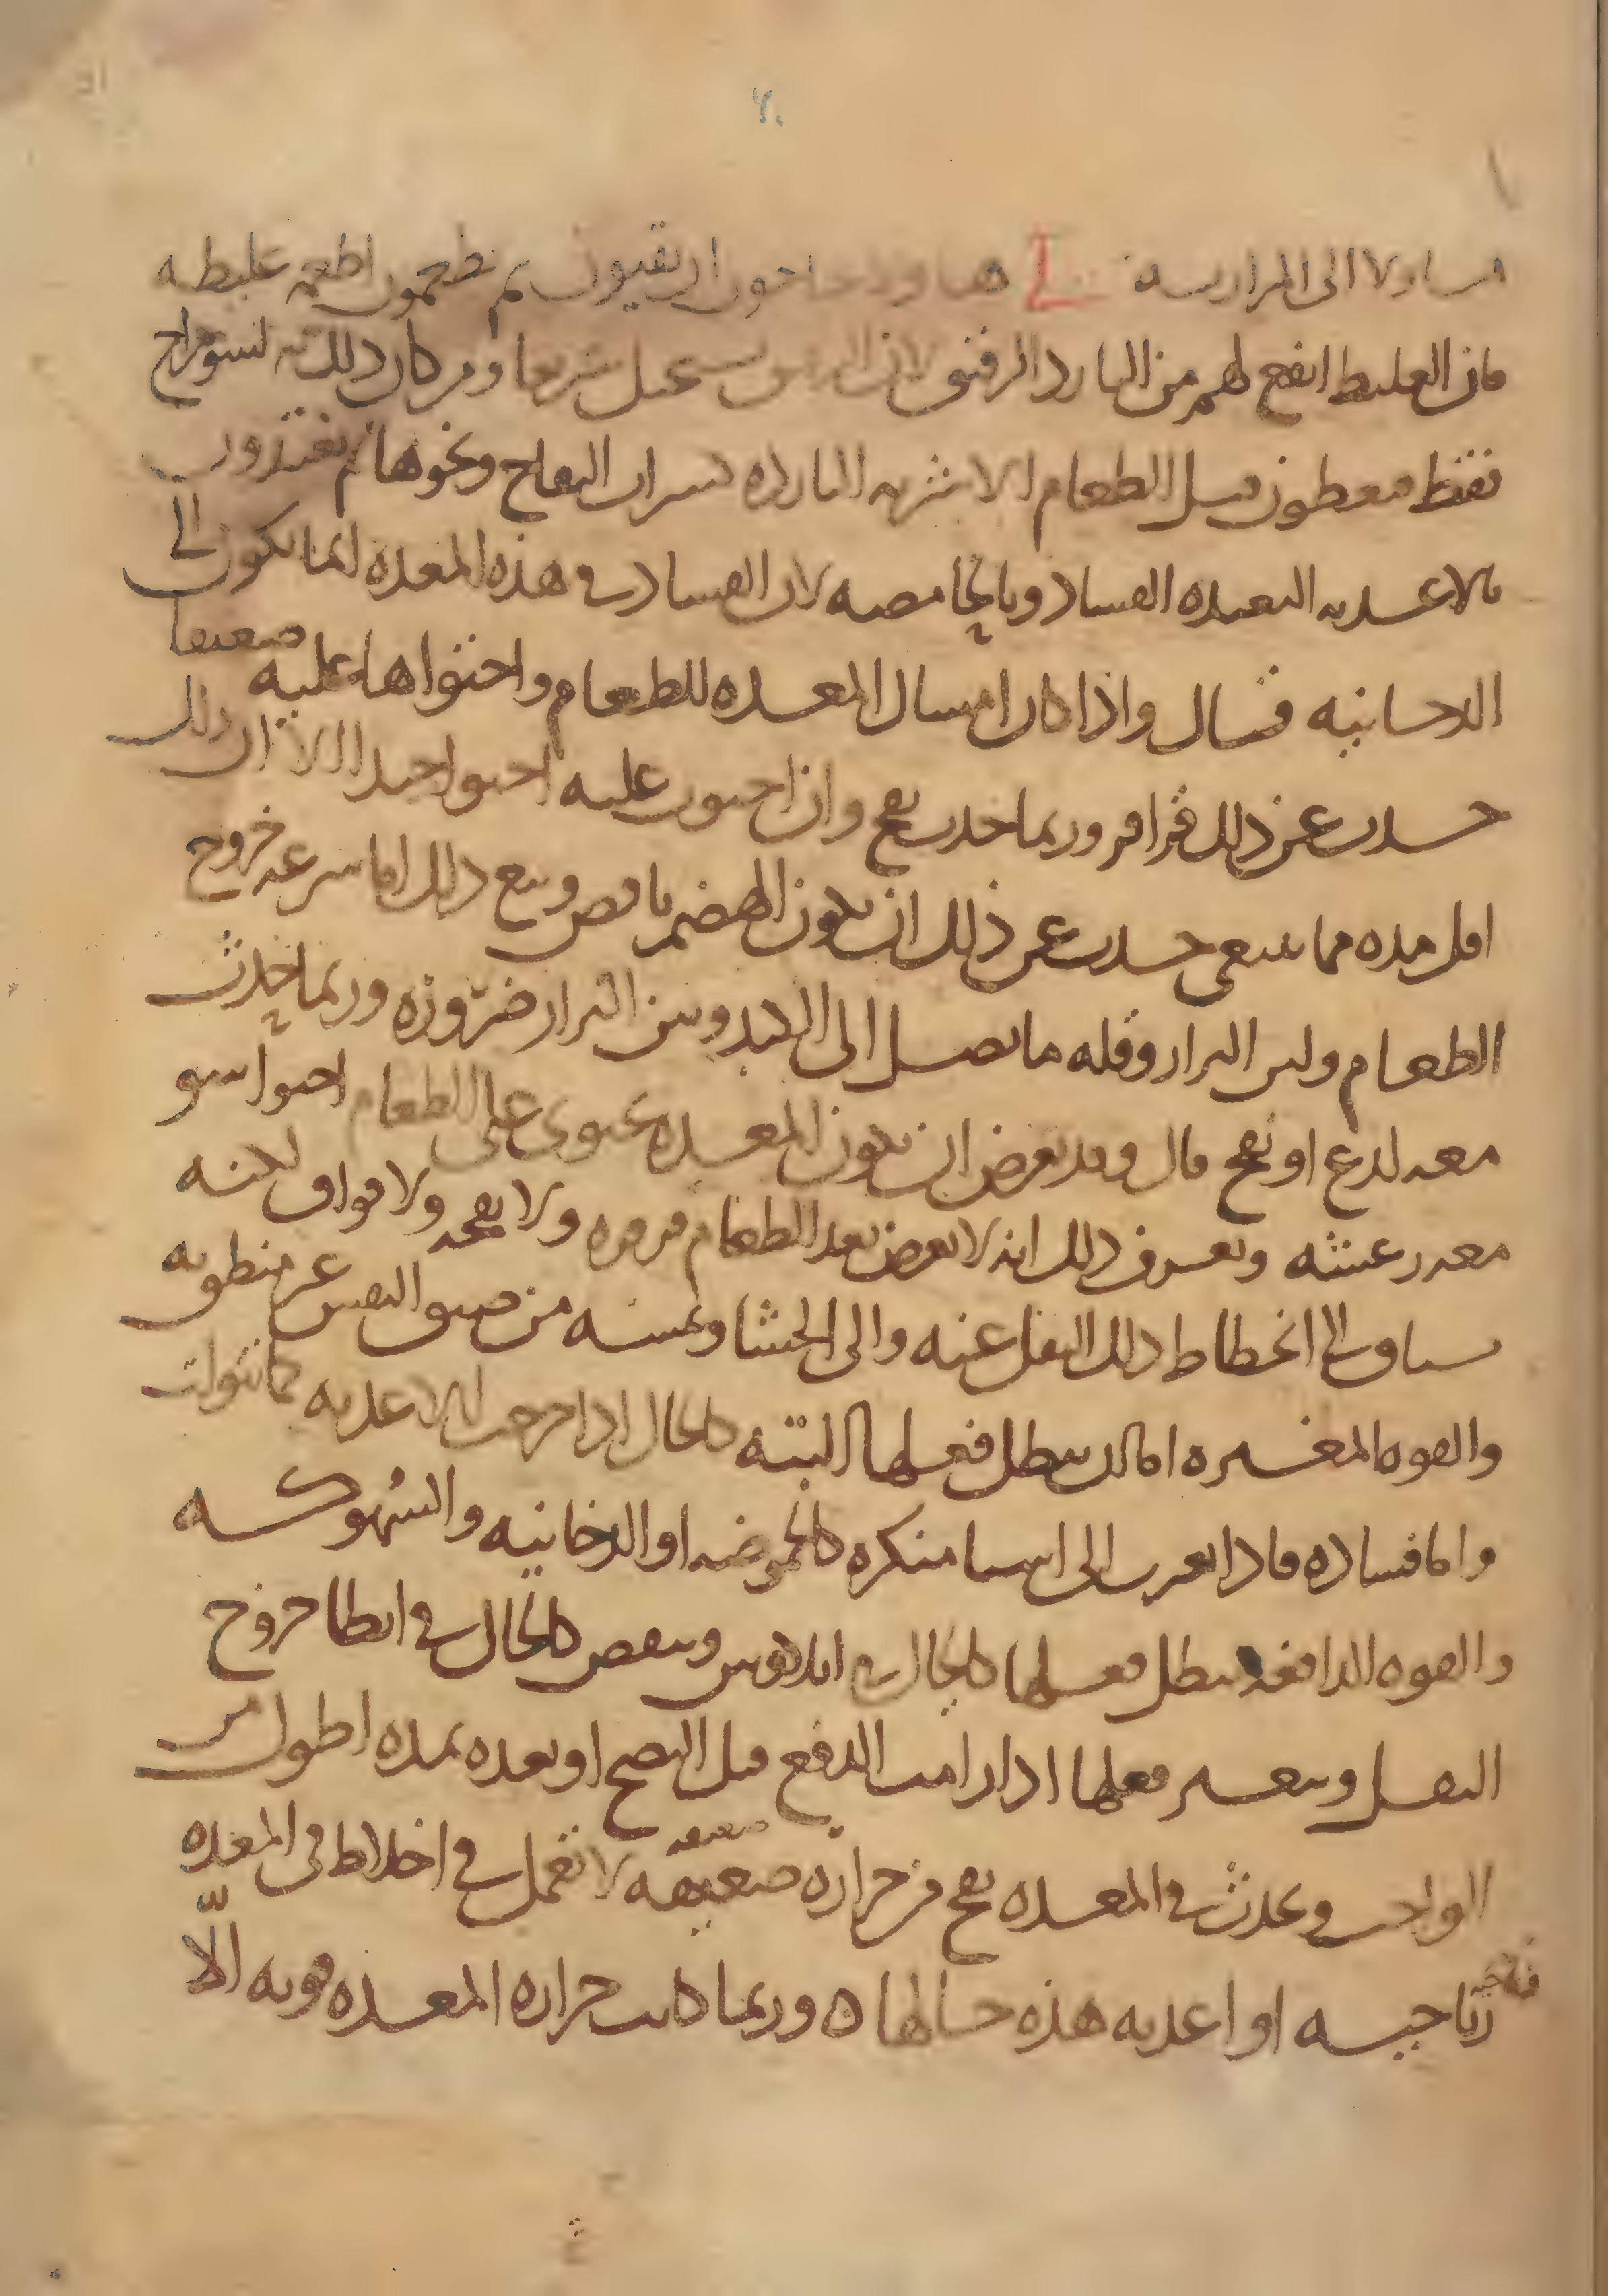 ٢٠
الى المرار لي يحتاجون ان يقيون ثم يطعمون اطعمه غليظه
فان الغليظ انفع لهم من البارد الرقيق لان الرقيق يستحيل سريعا ومن كان ذلك به لسو مزاج
فقط فيعطون قبل الطعام الاشربه البارده كشراب التفاح ونحوها ثم يغتذون
بالاغذيه البعيده الفساد وبالحامضه لان الفساد في هذه المعده انما يكون الى
الدخانيه قال واذا كان امساك المعده للطعام واحتواها عليه ضعيفا
حدث عن ذلك قراقر وربما حدث نفخ وان احتوت عليه احتوا جيدا الا ان ذلك
اقل مده مما ينبغي حدث عن ذلك ان يكون الهضم ناقص ويتبع ذلك اما سرعه خروج
الطعام ولين البراز وقله ما يصل الى الكبد ونتن البراز ضروره وربما حدث
معه لدع او نفخ قال وقد يعرض ان يكون المعده تحتوي على الطعام احتوا سو
معه رعشه وتعرف ذلك انه لا يعرض بعد الطعام قرقره ولا نفخه ولا فواق لكنه
يتاوق الى انحطاط ذلك الثقل عنه والى الجشا ويمسه من ضيق النفس غير منطوبه
والقوه المغيره اما ان يبطل فعلها البته كالحال اذا خرجت الاغذيه كما تنوولت
واما فساده فاذا تغيرت الى اشيا منكره كالحموضه او الدخانيه والسهوكه
والقوه الدافعه يبطل فعلها كالحال في ايلاوس وينقص كالحال في ابطا خروج
الثفل ويتعسر فعلها اذا رامت الدفع قبل النضج او بعده بمده اطول من
الواجب ويحدث في المعده نفخ من حراره ضعيفه ضعيفه لا تعمل في اخلاط في المعده
رياحيه او اغذيه هذه حالها ه وربما كانت حراره المعده قويه الا